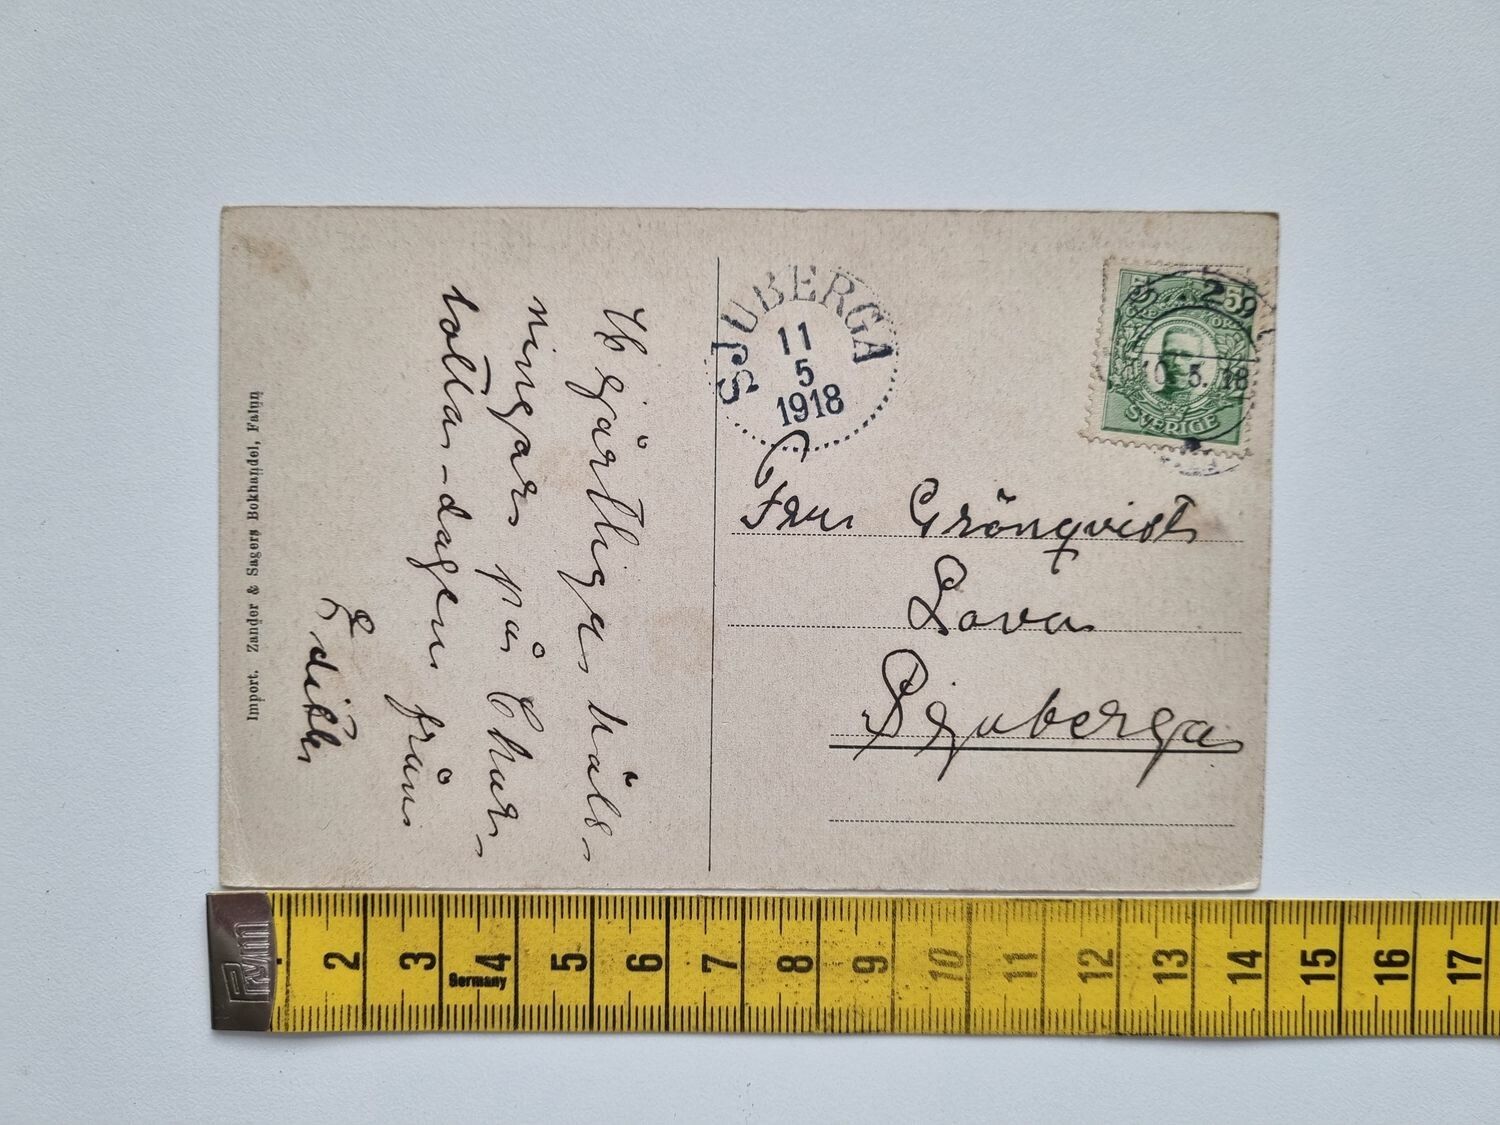 Hjärtliga häls-
ningar på Char-
lotta-dagen från
Edith
Import. Zander & Sagers Bokhandel, Falun
SJUBERGA
11
5
1918
5
5
SVERIGE
10. 5. 18
Fru Grönqvist
Lova
Sjuberga
Prym
2 3 4 5 6 7 8 9 10 11 12 13 14 15 16 17
Germany